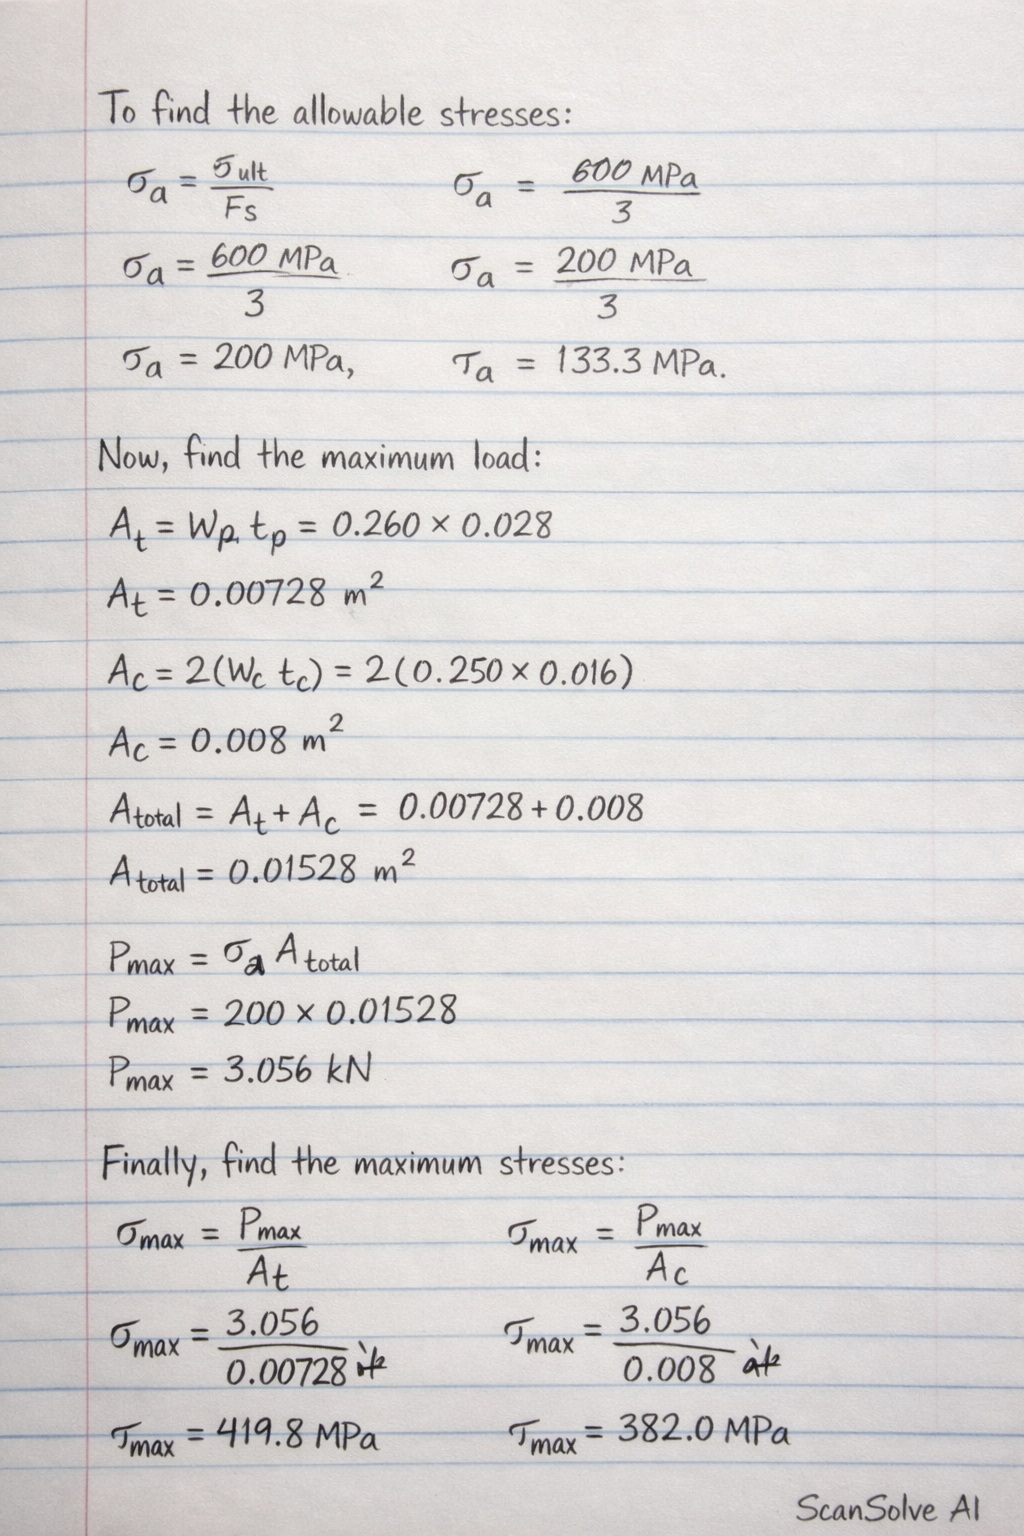 To find the allowable stresses:
σa = σult / Fs    σa = 600 MPa / 3
σa = 600 MPa / 3    σa = 200 MPa / 3
σa = 200 MPa,    τa = 133.3 MPa.
Now, find the maximum load:
At = Wp tp = 0.260 × 0.028
At = 0.00728 m²
Ac = 2(Wc tc) = 2(0.250 × 0.016)
Ac = 0.008 m²
Atotal = At + Ac = 0.00728 + 0.008
Atotal = 0.01528 m²
Pmax = σa Atotal
Pmax = 200 × 0.01528
Pmax = 3.056 kN
Finally, find the maximum stresses:
σmax = Pmax / At    τmax = Pmax / Ac
σmax = 3.056 / 0.00728    τmax = 3.056 / 0.008
τmax = 419.8 MPa    τmax = 382.0 MPa
ScanSolve AI